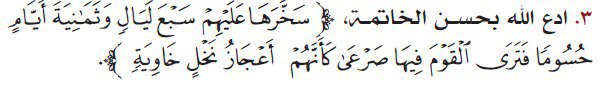 ٣. ادع الله بحسن الخاتمة، ﴿ سَخَّرَهَا عَلَيْهِمْ سَبْعَ لَيَالٍ وَثَمَٰنِيَةَ أَيَّامٍ
حُسُومًا فَتَرَى ٱلْقَوْمَ فِيهَا صَرْعَىٰ كَأَنَّهُمْ أَعْجَازُ نَخْلٍ خَاوِيَةٍ ﴾.